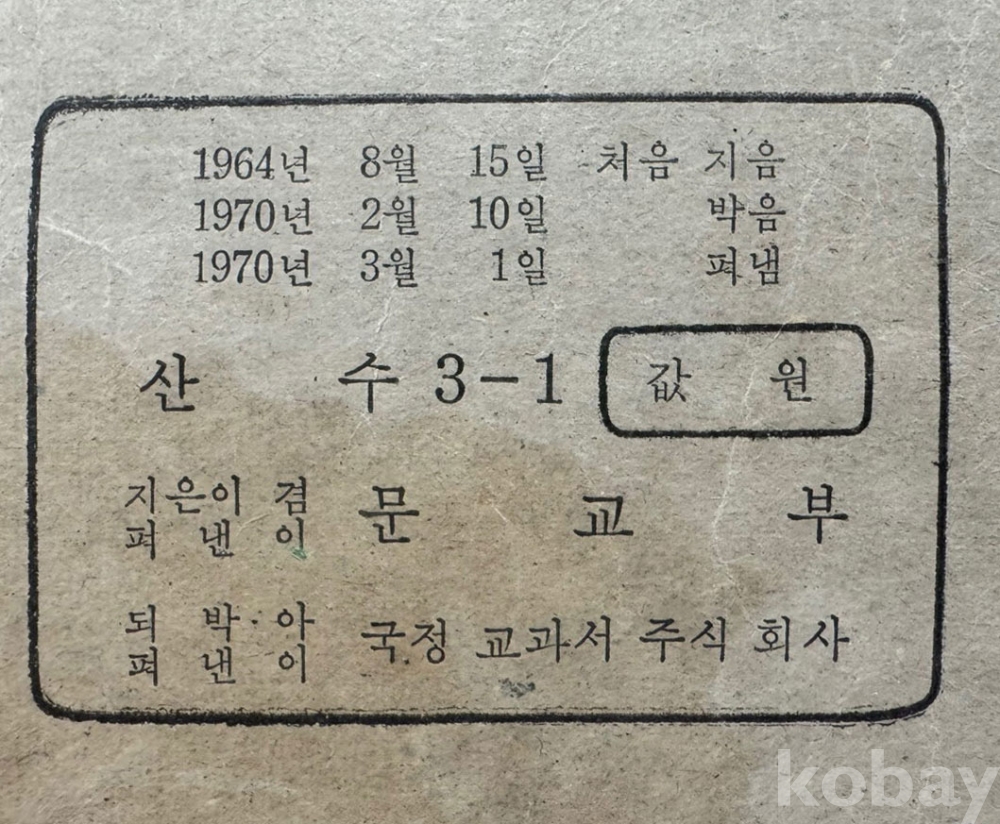 1964년 8월 15일 처음 지음
1970년 2월 10일 박음
1970년 3월 1일 펴냄
산 수 3-1 값 원
지은이 겸
펴 낸 이 문 교 부
되 박 아
펴 낸 이 국정 교과서 주식 회사
kobay